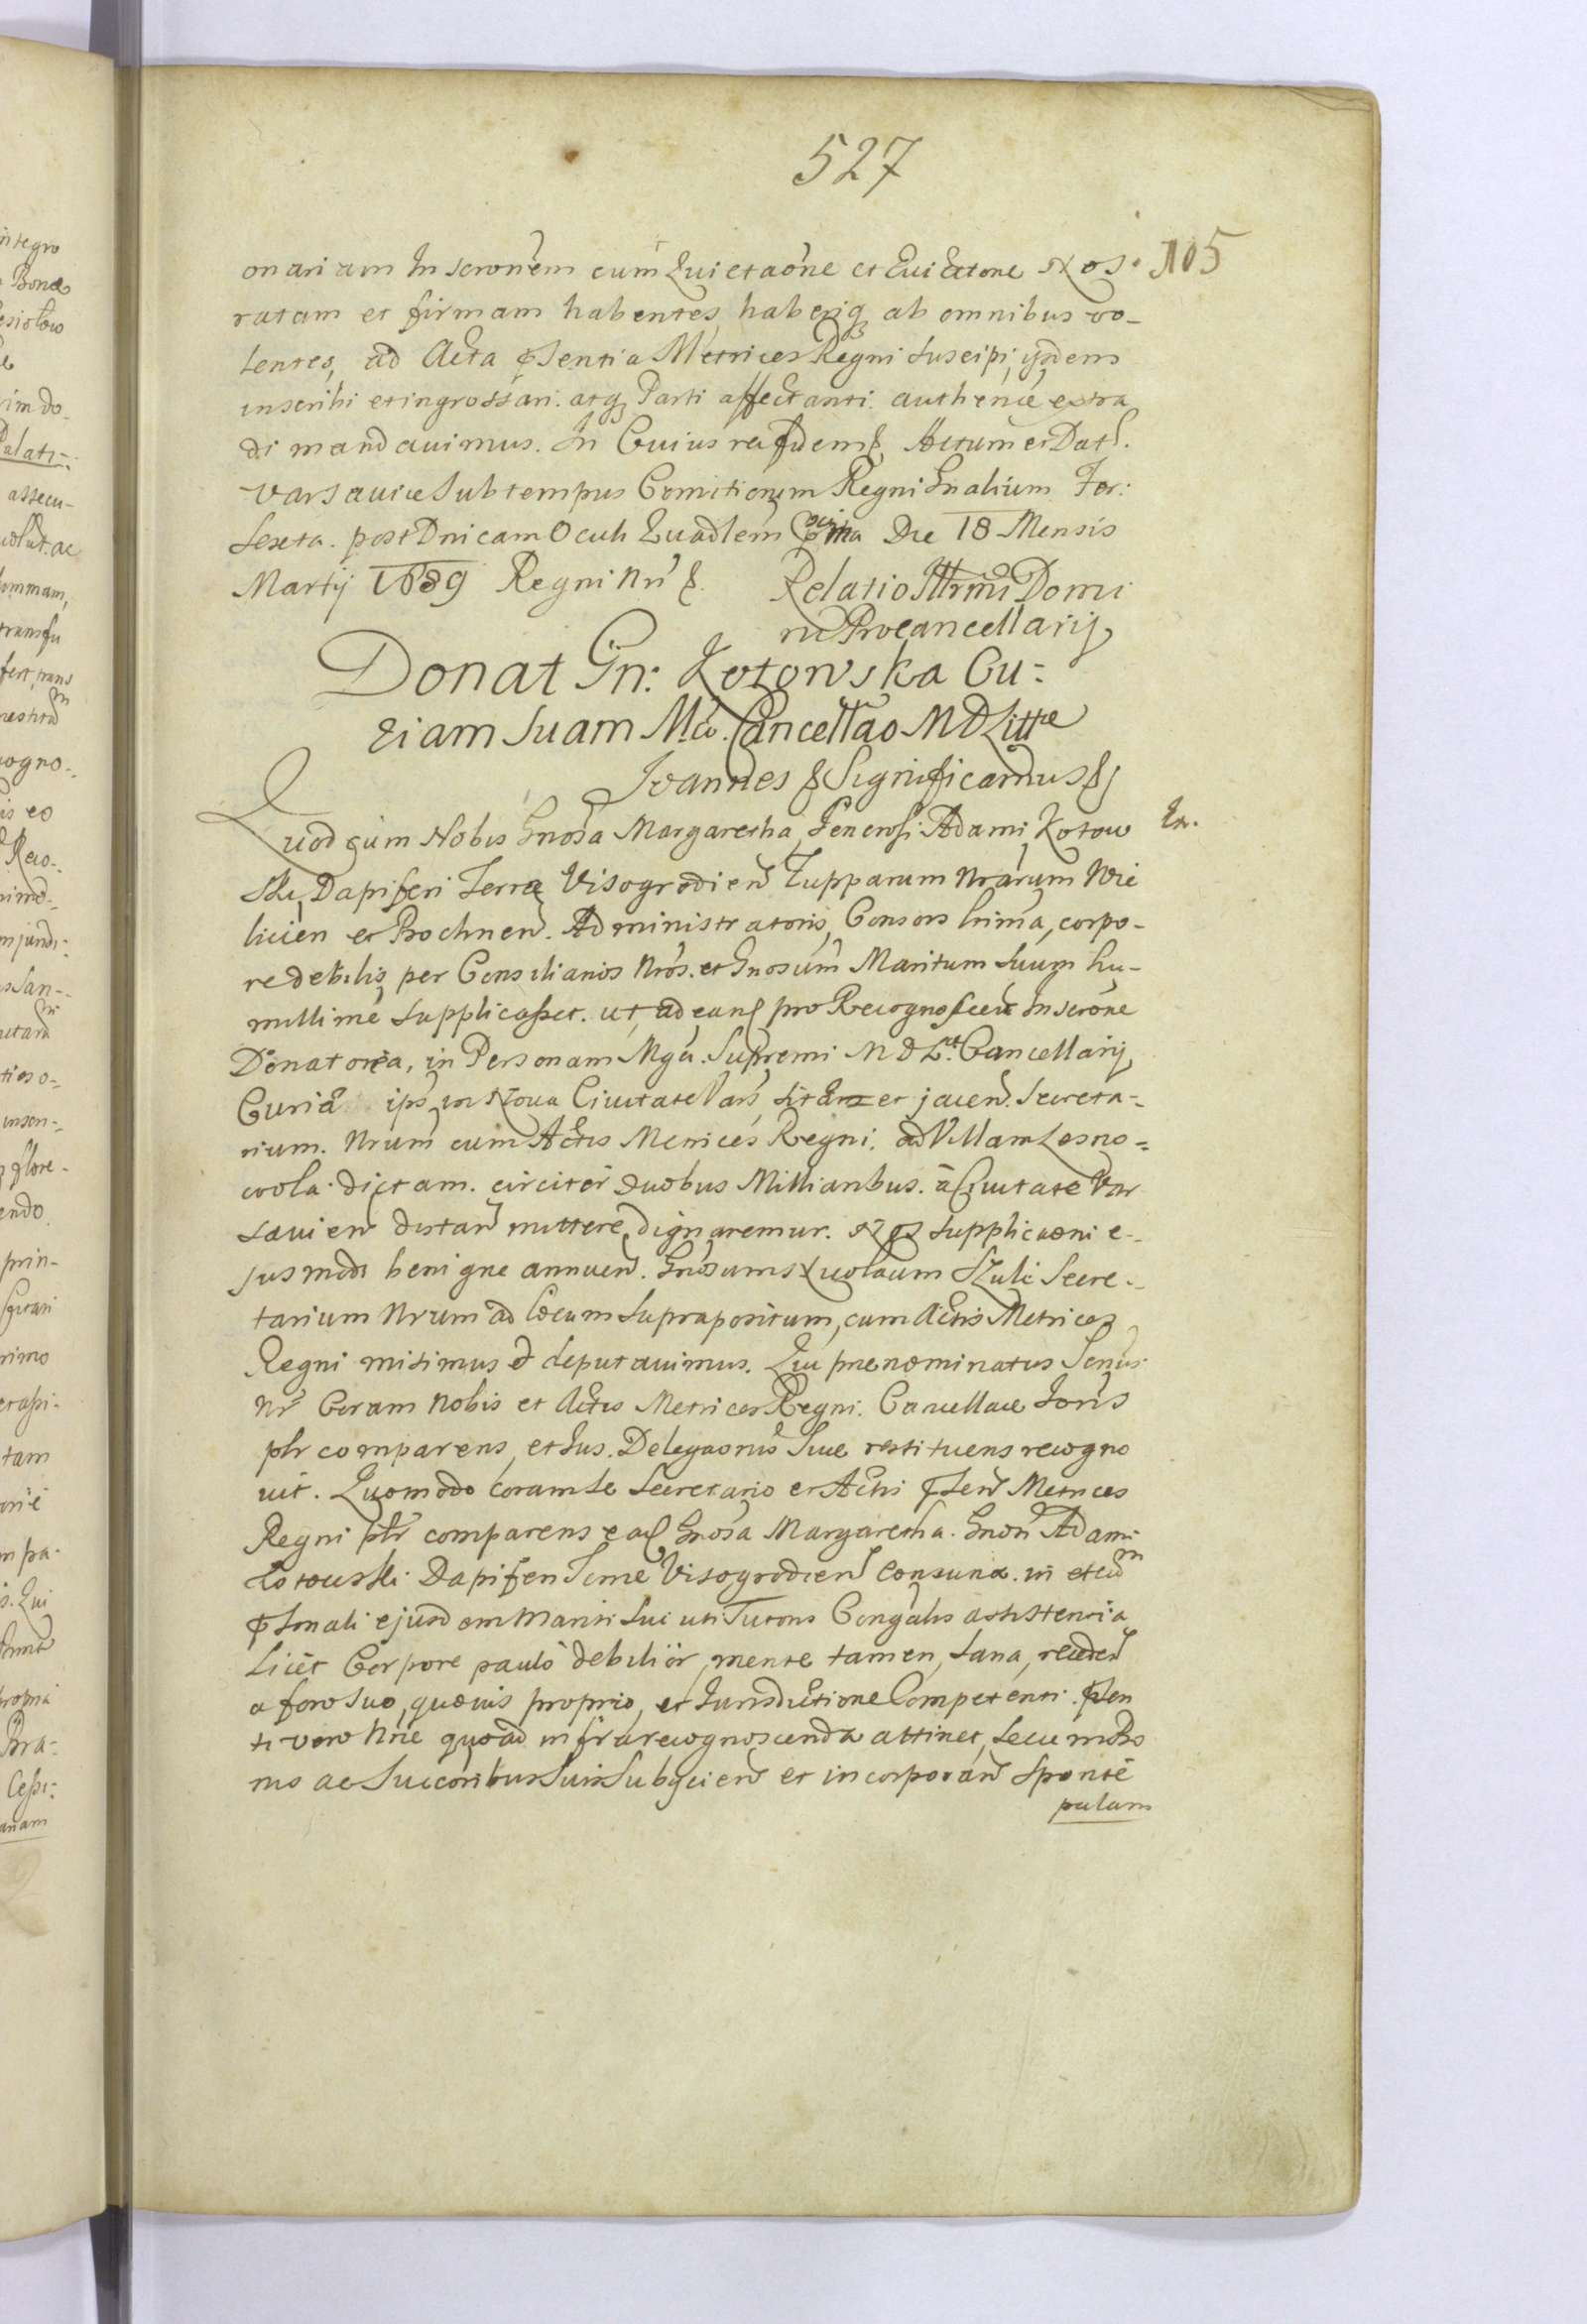 527
105
onariam Inscronem cum Quietaōne et Evictione Nos.
ratam et firmam habentes, haberiq ab omnibus vo-
lentes, ad Acta pſentia Metrices Regni suscipi, ijsdem
inscribi et ingrossari. atq Parti affectanti. authencè extra
di mandavimus. In Cuius rei fidem &. Actum et Dat.
Varsaviæ Sub tempus Comitiorum Regni Gnalium Fer:
Sexta. post Dnicam Oculi Quadlem pxima Die 18 Mensis
Martij 1689 Regni Nri &. Relatio Illrmi Domi
ni Procancellarij
Donat Gn: Kotowska Cu=
riam suam Mco. Cancellao MDLittæ
Joannes & Significamus &
Quod cum Nobis Gnosa Margaretha Generosi Adami Kotow
In.
ski, Dapiferi Terræ Visogrodien Zupparum Nrarum Wie
licien et Bochnen. Administratoris, Consors lrima, corpo-
re debilis, per Consiliarios Nros. et Gnosum Maritum suum hu-
millime supplicasset. ut ad eand pro Recognoscen Inscrone
Donatoria, in Personam Mgci. Supremi M D Lit Cancellarij,
Curiæ ips in Nova Civitate Vars sitæ et jacen. Secreta-
rium. Nrum cum Actis Metrices Regni. ad Villam Lesno=
wola dictam. circiter duobus Milliaribus. à Civitate Var
savien distan mittere dignaremur. Nos supplicaoni e-
jusmodi benigne annuen. Gnosum Szulc Secre-
tarium Nrum ad locum suprapositum, cum Actis Metrices
Regni misimus et deputavimus. Qui prænominatus Scrius
Nr Coram Nobis et Actis Metrices Regni. Cancellaræ Joris
plr comparens, et Jus. Delegaonis suæ restituens recogno
vit. Quomodo Coram se Secretario et Actis pſen Metrices
Regni plr comparens ead Gnosa Margaretha. Gnosi Adami
Kotowski Dapiferi Terræ Visogrodien Consuna. in et cum
pſonali ejusdem Mariti sui uti Tutoris Congalis assistentia
Licèt Corpore paulò debilior, mente tamen, sana, receden
a foro suo, quovis proprio, et Jurisdictione Competenti. pſen
ti vero Nræ quoad infra recognoscenda attinet, se cum Bo
nis ac Succoribus suis Subijcien et incorporan sponte
palam